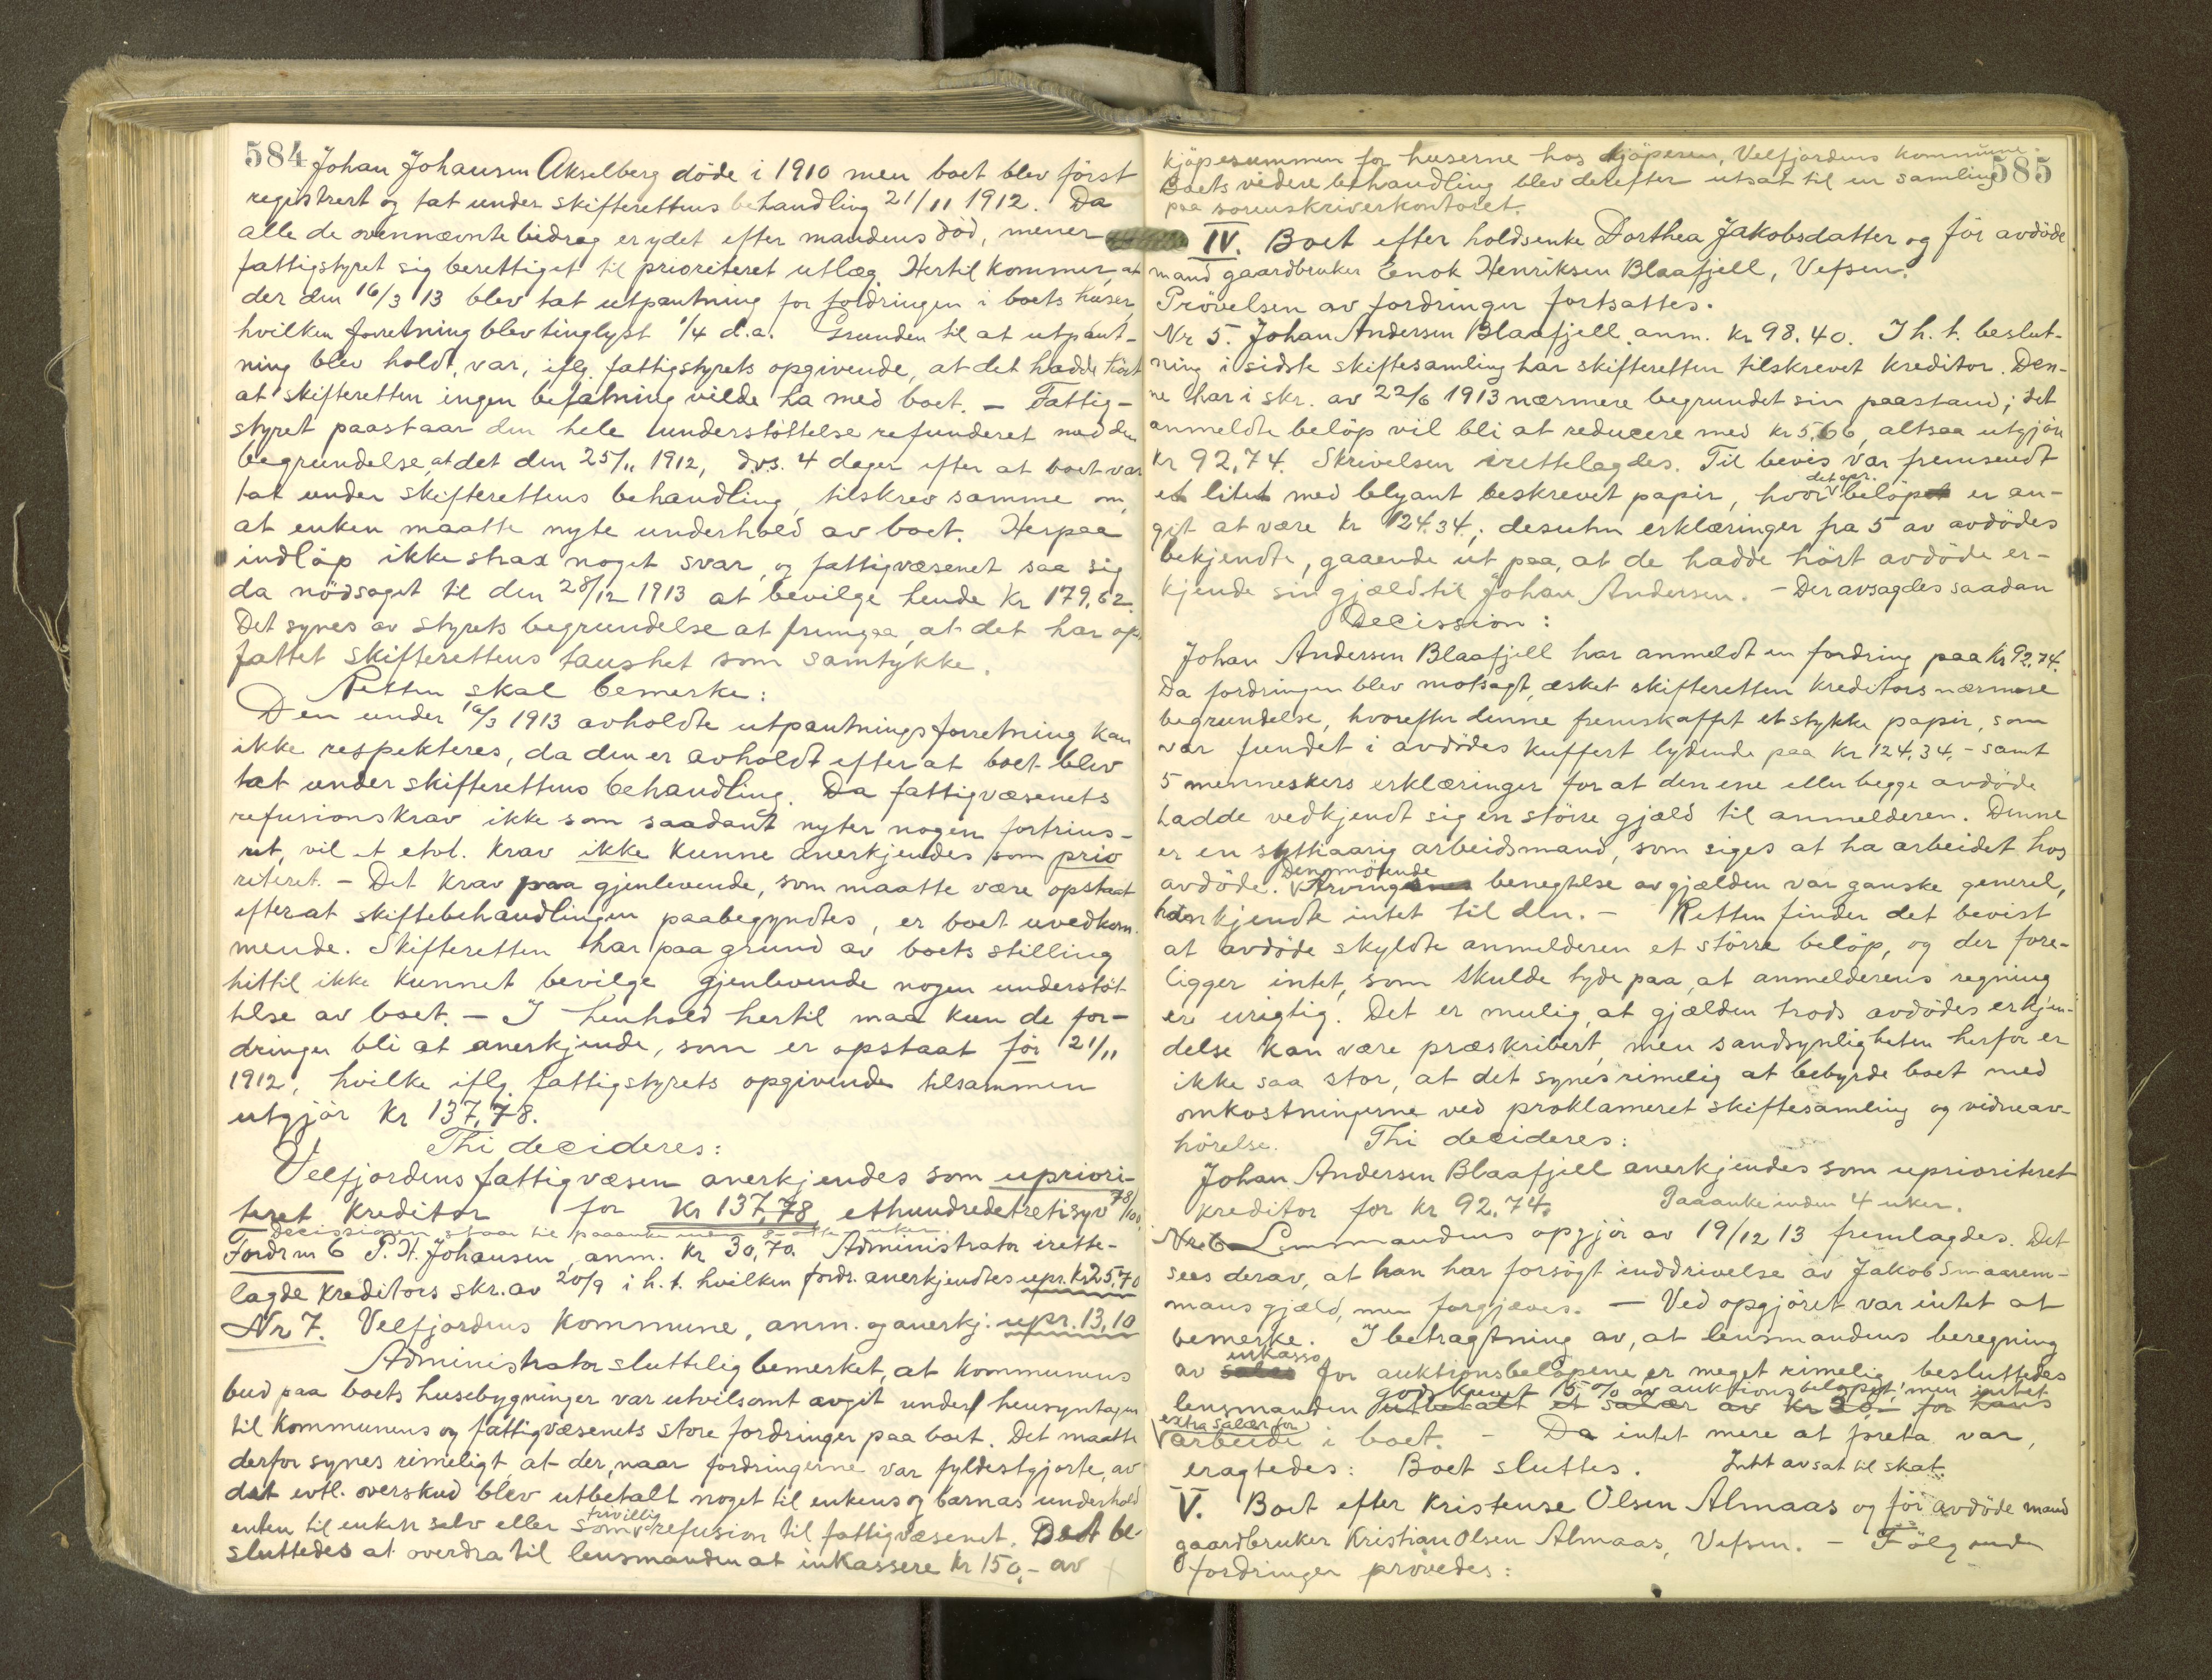 584 Johan Johansen Akselberg döde i 1910 men boet blev först
registrert og tat under skifterettens behandling 21/11 1912. Da
alle de ovennævnte bidrag er ydet efter mandens död, mener
fattigstyret sig berettiget til prioriteret utlæg. Hertil kommer, at
der den 16/3 13 blev tat utpantning for fordringen i boets huser,
hvilken forretning blev tinglyst 1/4 d.a. Grunden til at utpant-
ning blev holdt, var, iflg. fattigstyrets opgivende, at det hadde hört
at skifteretten ingen befatning vilde ha med boet. – Fattig-
styret paastaar den hele understöttelse refunderet med den
begrundelse, at det den 25/11 1912, d.v.s. 4 dager efter at boet var
tat under skifterettens behandling, tilskrev samme om,
at enken maatte nyte underhold av boet. Herpaa
indlöp ikke strax noget svar, og fattigvæsenet saa sig
da nödsaget til den 28/12 1913 at bevilge hende kr 179,62.
Det synes av styrets begrundelse at fremgaa, at det har op-
fattet skifterettens taushet som samtykke.
Retten skal bemerke:
Den under 16/3 1913 avholdte utpantningsforretning kan
ikke respekteres, da den er avholdt efter at boet blev
tat under skifterettens behandling. Da fattigvæsenets
refusionskrav ikke som saadant nyter nogen fortrins-
ret, vil et evt. krav ikke kunne anerkjendes som prio
riteret. – Det krav paa gjenlevende, som maatte være opstaat
efter at skiftebehandlingen paabegyndtes, er boet uvedkom-
mende. Skifteretten har paa grund av boets stilling
hittil ikke kunnet bevilge gjenlevende nogen understöt-
telse av boet. – I henhold hertil maa kun de for-
dringer bli at anerkjende, som er opstaat för 21/11
1912, hvilke iflg. fattigstyrets opgivende tilsammen
utgjör kr 137,78.
Thi decideres:
Velfjordens fattigvæsen anerkjendes som upriori-
teret kreditor for kr 137,78 ethundredetretisyv 78/100.
Decissionen staar til paaanke
Fordr nr 6 P. A. Johansen, anm. kr 30,70. Administrator irette-
lagde kreditors skr. av 20/9 i h. t. hvilken fordr. anerkjendtes upr. kr 25,70
Nr 7. Velfjordens kommune, anm. og anerkj. upr. 13,10
Administrator sluttelig bemerket, at kommunens
bud paa boets husebygninger var utvilsomt avgit under hensyntagen
til kommunens og fattigvæsenets store fordringer paa boet. Det maatte
derfor synes rimeligt, at der, naar fordringerne var fyldestgjorte, av
det evtl. overskud blev utbetalt noget til enkens og barnas underhold
enten til enken selv eller som frivillig refusion til fattigvæsenet. Det be-
sluttedes at overdra til lensmanden at inkassere kr 150,- av
585
kjöpesummen for huserne hos kjöperen, Velfjordens kommune.
Boets videre behandling blev derefter utsat til en samling
paa sorenskriverkontoret.
IV. Boet efter holdsenke Dorthea Jakobsdatter og för avdöde
mand gaardbruker Enok Henriksen Blaafjell, Vefsen.
Prövelsen av fordringer fortsattes.
Nr 5. Johan Andersen Blaafjell, anm. kr 98.40. I h. t. beslut-
ning i sidste skiftesamling har skifteretten tilskrevet kreditor. Den-
ne har i skr. av 22/6 1913 nærmere begrundet sin paastand; det
anmeldte belöp vil bli at reducere med kr 5,66, altsaa utgjöre
kr 92,74. Skrivelsen irettelagdes. Til bevis var fremsendt
et litet med blyant beskrevet papir, hvor det opr. belöpet er an-
git at være kr 124.34.; desuten erklæringer fra 5 av avdödes
bekjendte, gaaende ut paa, at de hadde hört avdöde er-
kjende sin gjæld til Johan Andersen. – Der avsagdes saadan
Decission:
Johan Andersen Blaafjell har anmeldt en fordring paa kr 92,74.
Da fordringen blev motsagt, æsket skifteretten kreditors nærmere
begrundelse, hvorefter denne fremskaffet et stykke papir, som
var fundet i avdödes kuffert lydende paa kr 124,34, – samt
5 menneskers erklæringer for at den ene eller begge avdöde
hadde vedkjendt sig en större gjæld til anmelderen. Denne
er en syttiaarig arbeidsmand, som siges at ha arbeidet hos
avdöde. Den mötende Arvings benegtelse av gjælden var ganske generel,
han kjendte intet til den. – Retten finder det bevist
at avdöde skyldte anmelderen et större belöp, og der fore-
ligger intet, som skulde tyde paa, at anmelderens regning
er urigtig. Det er mulig, at gjælden trods avdödes erkjen-
delse kan være præskribert, men sandsynligheten herfor er
ikke saa stor, at det synes rimelig at bebyrde boet med
omkostningerne ved proklameret skiftesamling og vidneav-
hörelse. Thi decideres:
Johan Andersen Blaafjell anerkjendes som uprioriteret
kreditor for kr 92.74. Paaanke inden 4 uker.
Lensmandens opgjör av 19/12 13 fremlagdes. Det
sees derav, at han har forsögt inddrivelse av Jakob Smaarem-
mans gjæld, men forgjæves. – Ved opgjöret var intet at
bemerke. I betragtning av, at lensmandens beregning
av inkasso for auktionsbelöpene er meget rimelig besluttedes
lensmanden godskrevet 15 % av auktionsbelöpet, men intet
utbetalt et salær av kr 20,- for hans
extra salær for arbeide i boet. – Da intet mere at foreta var,
eragtedes: Boet sluttes. Intt avsat til skat.
V. Boet efter Kristense Olsen Almaas og för avdöde mand
gaardbruker Kristian Olsen Almaas, Vefsen. – Fölgende
fordringer prövedes: